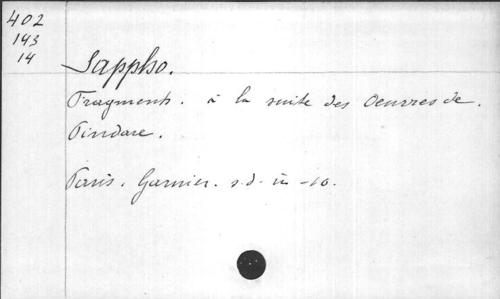 402
143
14
Sappho.
Fragments. à la suite des Oeuvres de.
Pindare.
Paris. Garnier. s.d. in-10.